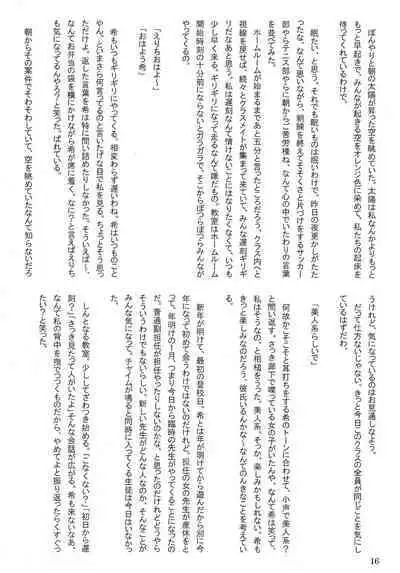 ぼんやりと朝の太陽が昇った空を眺めていた。太陽は私なんかよりもっと
もっと早起きで、みんなが起きる空をオレンジ色に染めて、私たちの起床を
待ってくれているわけで。
眠たい、と思う。それでも眠いものは眠いわけで、昨日の夜更かしがたた
ったな、なんて思いながら、朝練を終えてそそくさと片づけをするサッカー
部やらテニス部やらに朝から一苦労様ね、なんて心の中でいたわりの言葉
を並べてみた。
ホームルームが始まるまであと五分と言ったところだろうか。クラス内へと
視線を戻せば、続々とクラスメイトが集まって来ていて、みんな遅刻ギリギ
リだなあと思う。私は遅刻なんて情けないことにはなりたくなくて、いつも
少し早く来る。ギリギリになって走るなんて誰だもの。教室はホームルーム
開始時刻の十分前にならないとガラガラで、そこからぽつぽつみんなが
やってくるの。
「えりちおはよ〜」
「おはよう希」
希もいつもギリギリにやってくる。相変わらず遅いわね、希はいつものこと
やん、といまさら何言ってるのと言いたげな目で私を見る。ちょっとそう思
っただけ。返した言葉を希は特に問い詰めたりしなかった。そういえば〜、
なんてお弁当の袋を横にかけながら希が席に着く。なに?と言えばえりち
も気になってるんやろ?と笑った。ばれている。
朝からその案件でそわそわしていて、空を眺めていたなんて知らないだろ
うけれど、気になっているのはお見通しなよう。
だって仕方ないじゃない。きっと今日このクラスの全員が同じことを気にし
ているはずだわ。
「美人系らしいで」
何故かこそこそと耳打ちをする希のトーンに合わせて、小声で美人系?
と問い返す。さっき廊下で喋っている女の子がいたんや、なんて希は笑って、
私はそうなの、と相槌をうった。美人系、そっか、楽しみかもしれない。希も
きっと楽しみなのだろう、彼氏いるんかな〜なんてのんきなことを考えてい
る。
新年が明けて、最初の登校日。希とは年が明けてから遊んだから別に今
年になって初めて会うわけではないのだけれど。担任の女の先生が産休をと
って、年明けの1月、つまり今日から臨時の先生がやってくることになったの
だ。普通副担任が担任やったりしないのかな、と思ったのだけれどどうやら
そういうわけでもないらしい。新しい先生がどんな人なのか、そんなことが
みんな気になって、チャイムが鳴ると同時に入ってくる生徒は今日はいなかっ
た。
しんとなる教室。少ししてざわつき始める。「こなくない?」「初日から遅
刻?」「さっき見たって人がいたよ」そんな会話が広がる。希も来ないなあ、
なんて私の背中を撫でつつくものだから、やめてよと振り返ったらくすぐっ
たい?と笑った。
16